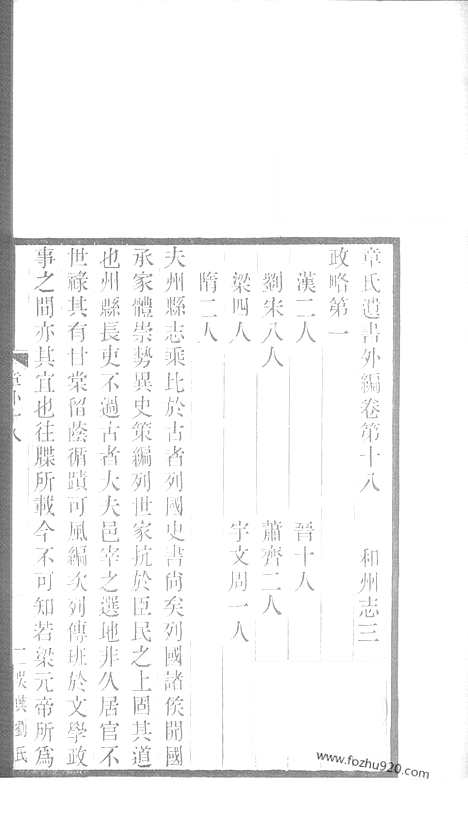 章氏遺書外編卷第十八　和州志三
政略第一
漢二人　晉十人
劉宋八人　蕭齊二人
梁四人　宇文周一人
隋二人
夫州縣志乘比於古者列國史書尚矣列國諸侯開國
承家體崇勢異史策編列世家抗於臣民之上固其道
也州縣長吏不過古者大夫邑宰之選地非久居官不
世祿其有甘棠留蔭循蹟可風編次列傳班於文學政
事之間亦其宜也往牒所載今不可知若梁元帝所爲
章外十八　一　吳興劉氏
www.fozhu920.com